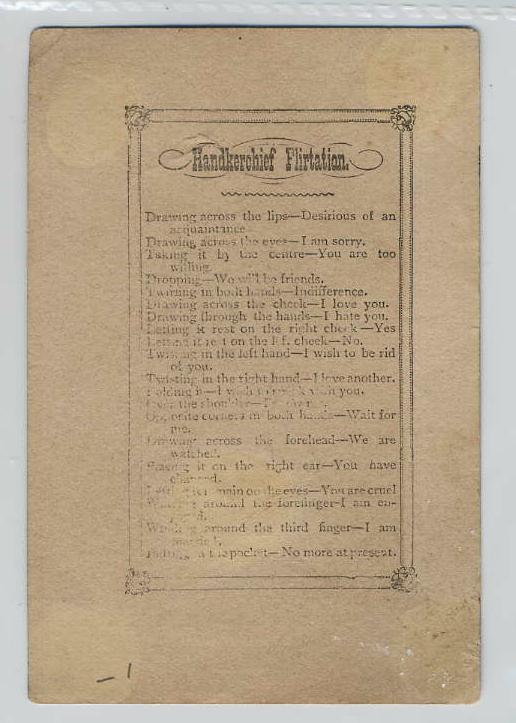 Handkerchief Flirtation.
Drawing across the lips—Desirious of an
acquaintance
Drawing across the eyes—I am sorry.
Taking it by the centre—You are too
willing.
Dropping—We will be friends.
Twirling in both hands—Indifference.
Drawing across the cheek—I love you.
Drawing through the hands—I hate you.
Letting it rest on the right cheek—Yes
Letting it rest on the left cheek—No.
Twisting in the left hand—I wish to be rid
of you.
Twisting in the right hand—I love another.
Folding it—I wish to speak with you.
Over the shoulder—
Opposite corners in both hands—Wait for
me.
Drawing across the forehead—We are
watched.
it on the right ear—You have
changed.
Letting it remain on the eyes—You are cruel
Winding around the forefinger—I am en-
Winding around the third finger—I am
married.
Putting in the pocket—No more at present.